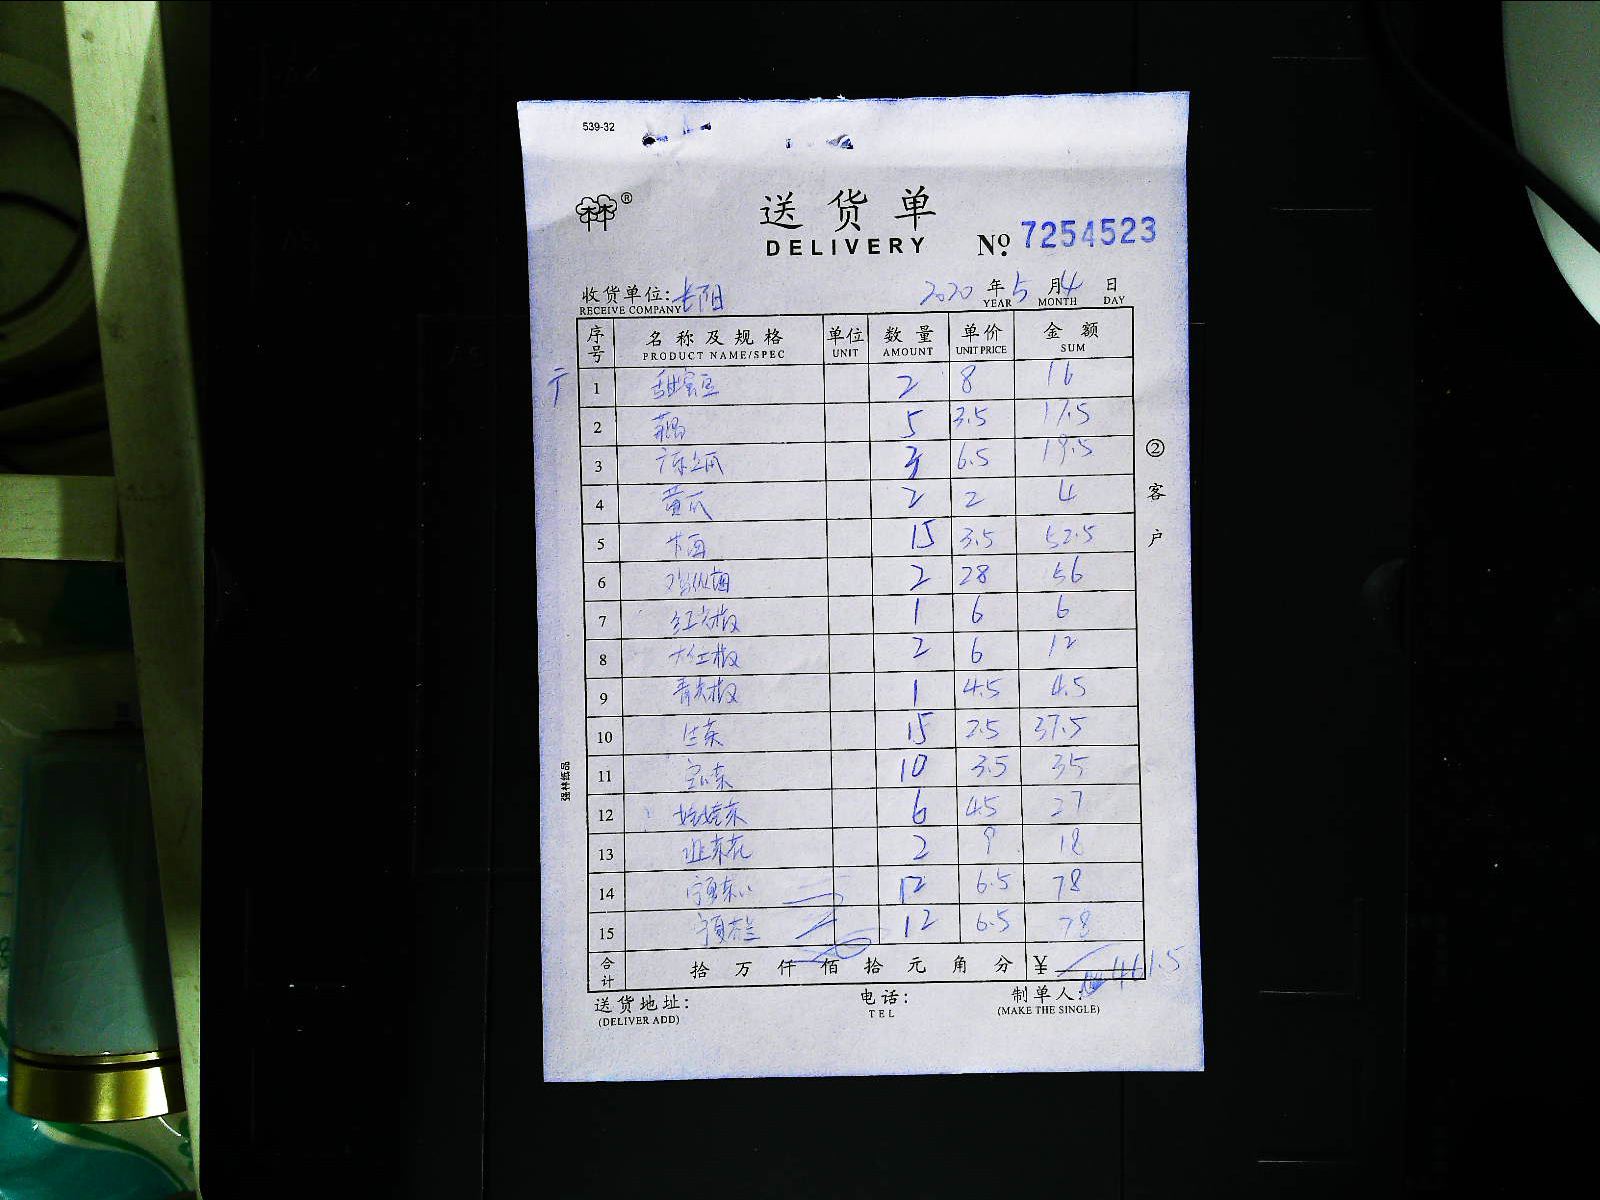 539-32
林®
送货单
DELIVERY
No. 7254523
收货单位: 长阳 2020 年 5 月 4 日
RECEIVE COMPANY YEAR MONTH DAY
序号 名称及规格 单位 数量 单价 金额
PRODUCT NAME/SPEC UNIT AMOUNT UNIT PRICE SUM
1 甜蜜豆 2 8 16
2 莲藕 5 3.5 17.5
3 3 6.5 19.5
4 黄瓜 2 2 4
5 15 3.5 52.5
6 2 28 56
7 红尖椒 1 6 6
8 大红椒 2 6 12
9 青尖椒 1 4.5 4.5
10 生菜 15 2.5 37.5
11 空心菜 10 3.5 35
12 娃娃菜 6 4.5 27
13 韭菜花 2 9 18
14 宁夏菜心 12 6.5 78
15 宁夏芥兰 12 6.5 78
合计 拾 万 仟 佰 拾 元 角 分 ¥ 461.5
送货地址: 电话: 制单人:
(DELIVER ADD) TEL (MAKE THE SINGLE)
②客户
强林纸品